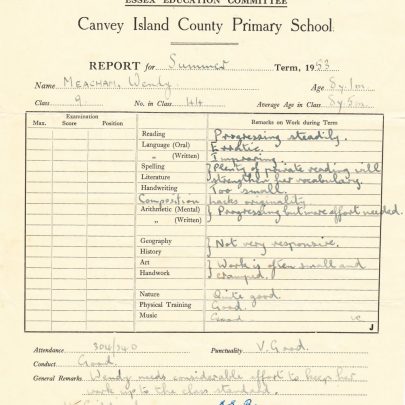 ESSEX EDUCATION COMMITTEE
Canvey Island County Primary School
REPORT for Summer Term, 1953
Name MEACHAM, Wendy Age 8y. 1m.
Class 9 No. in Class 44 Average Age in Class 8y. 5m.
Examination Remarks on Work during Term
Max. Score Position
Reading Progressing steadily.
Language (Oral) Erratic.
„ (Written) Improving
Spelling Plenty of private reading will
Literature strengthen her vocabulary.
Handwriting Too small.
Composition Lacks originality
Arithmetic (Mental) Progressing but more effort needed.
„ (Written)
Geography Not very responsive.
History
Art Work is often small and
Handwork cramped.
Nature Quite good.
Physical Training Good.
Music Good
J
Attendance 304/340 Punctuality V. Good.
Conduct Good.
General Remarks Wendy needs considerable effort to keep her
work up to the class standard.